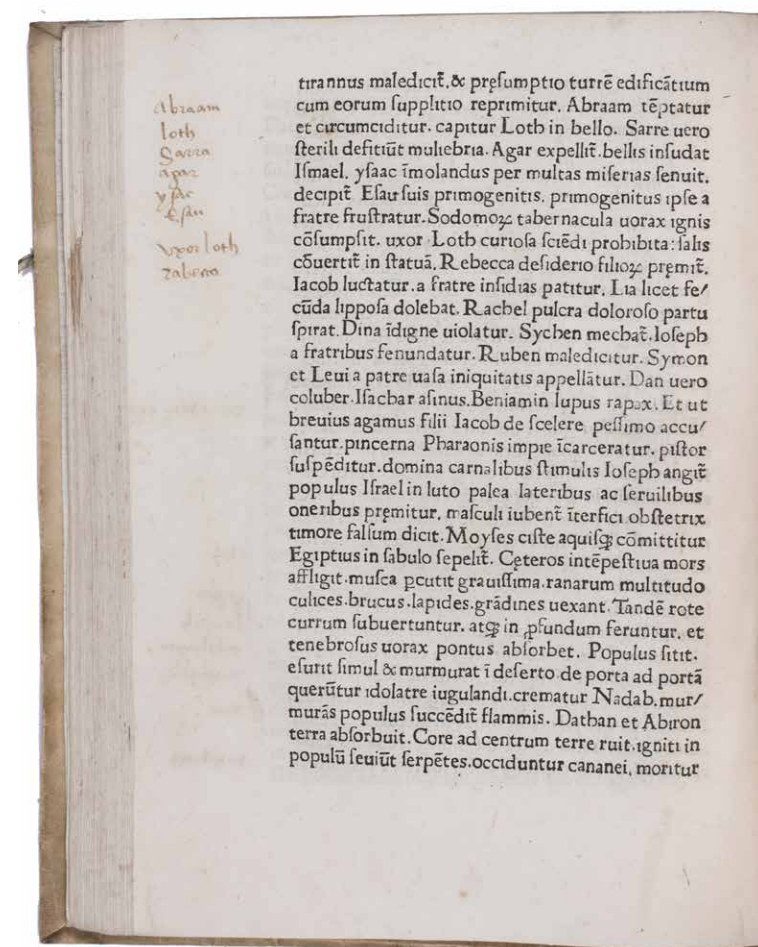 Abraam
loth
Sarra
agar
ysac
Esau
vxor loth
tirannus maledicit̄.& pręsumptio turrē edificātium
cum eorum supplitio reprimitur. Abraam tēptatur
et circumciditur. capitur Loth in bello. Sarre uero
sterili defitiūt muliebria. Agar expellit̄.bellis insudat
Ismael. ysaac īmolandus per multas miserias senuit.
decipit̄ Esau suis primogenitis. primogenitus ipse a
fratre frustratur. Sodomoꝝ tabernacula uorax ignis
cōsumpsit. uxor Loth curiosa sciēdi prohibita: salis
cōuertit̄ in statuā. Rebecca desiderio filioꝝ pręmit̄.
Iacob luctatur. a fratre insidias patitur. Lia licet fe/
cūda lipposa dolebat. Rachel pulcra doloroso partu
spirat. Dina īdigne uiolatur. Sychen mechat̄. Ioseph
a fratribus fenundatur. Ruben maledicitur. Symon
et Leui a patre uasa iniquitatis appellātur. Dan uero
coluber. Isachar asinus. Beniamin lupus rapax. Et ut
breuius agamus filii Iacob de scelere pessimo accu/
santur.pincerna Pharaonis impie īcarceratur. pistor
suspēditur.domina carnalibus stimulis Ioseph angit̄
populus Israel in luto palea lateribus ac seruilibus
oneribus pręmitur. masculi iubent̄ īterfici.obstetrix
timore falsum dicit. Moyses ciste aquisqꝫ cōmittitur
Egiptius in sabulo sepelit̄. Cęteros intēpestiua mors
affligit.musca ꝑcutit grauissima.ranarum multitudo
culices.brucus.lapides.grādines uexant. Tandē rote
currum subuertuntur. atqꝫ in ꝓfundum feruntur. et
tenebrosus uorax pontus absorbet. Populus sitit.
esurit simul & murmurat ī deserto de porta ad portā
querūtur idolatre iugulandi.crematur Nadab. mur/
murās populus succēdit̄ flammis. Dathan et Abiron
terra absorbuit. Core ad centrum terre ruit. igniti in
populū seuiūt serpētes.occiduntur cananei. moritur